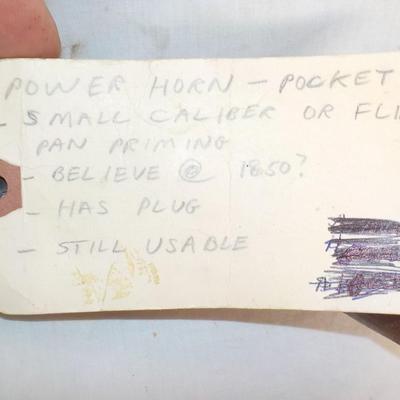 POWER HORN - POCKET
- SMALL CALIBER OR FLI
PAN PRIMING
- BELIEVE @ 1850?
- HAS PLUG
- STILL USABLE